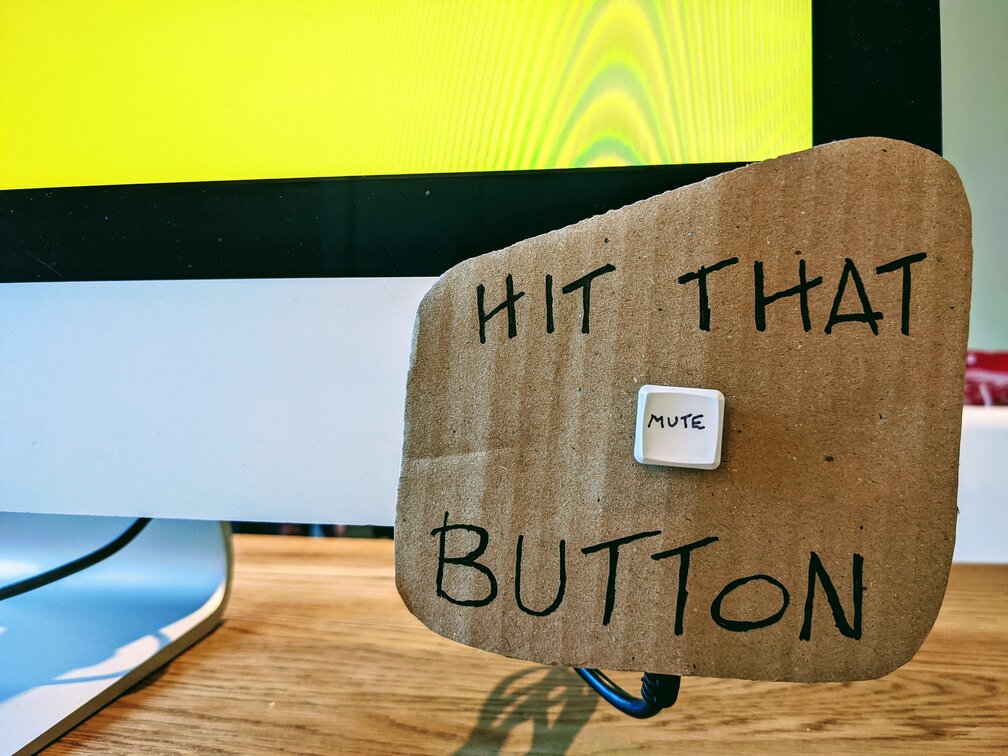 HIT THAT
MUTE
BUTTON